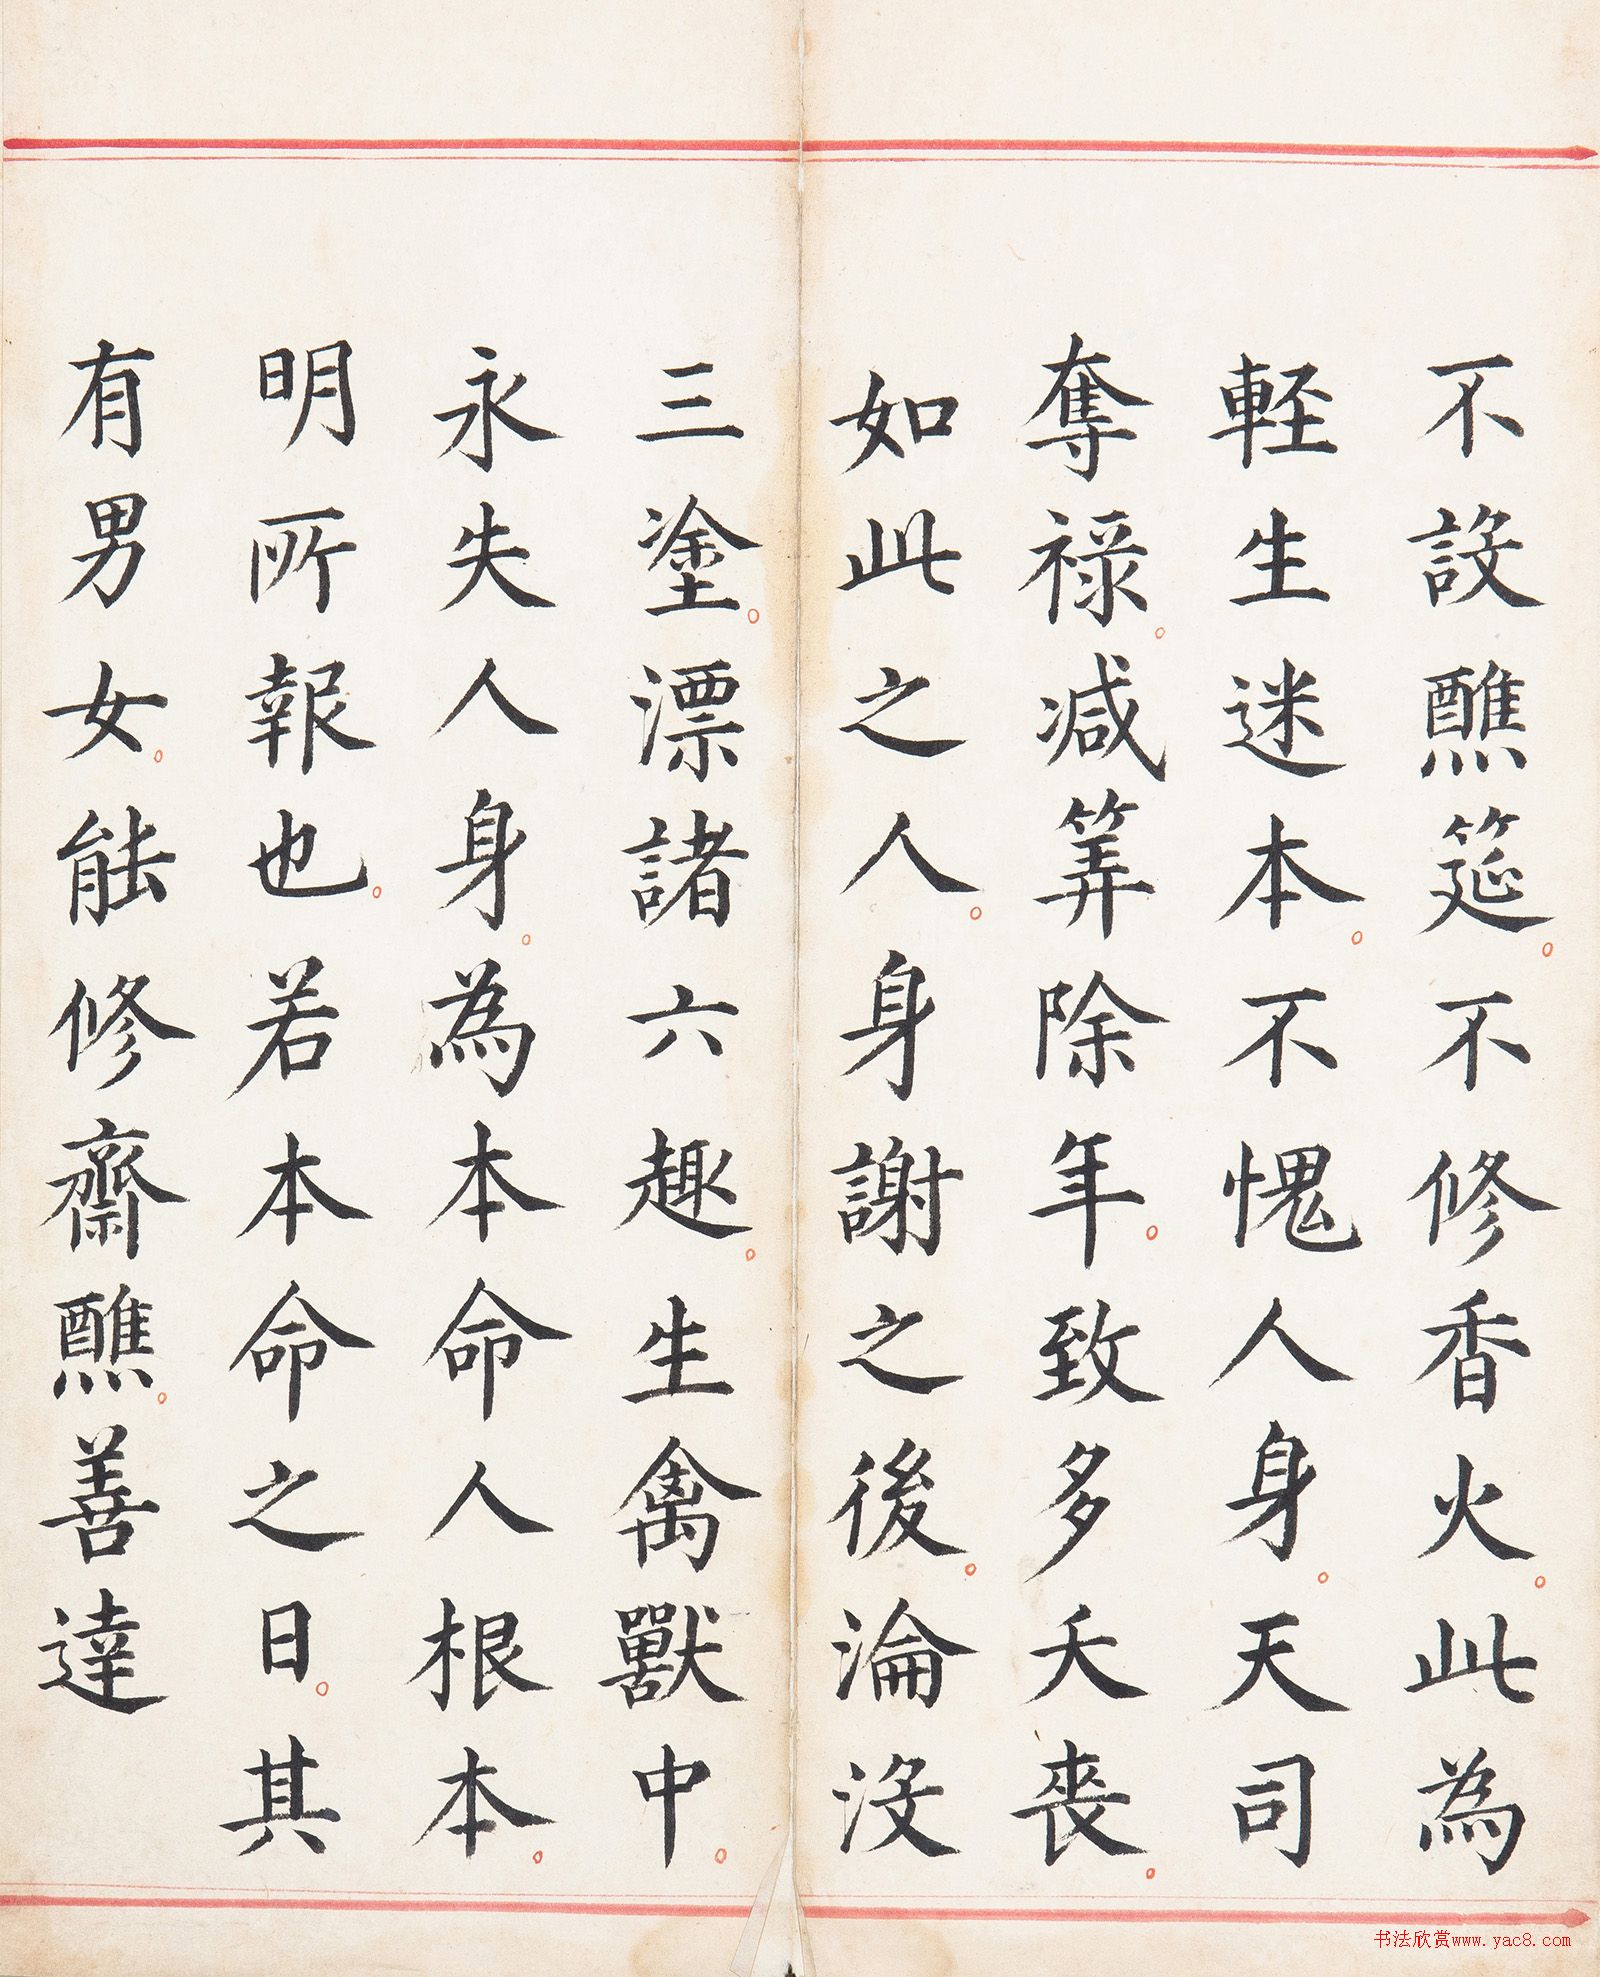 不設醮筵。不修香火。此為
輕生迷本。不愧人身。天司
奪祿。减筭除年。致多夭喪。
如此之人。身謝之後。淪沒
三塗。漂諸六趣。生禽獸中。
永失人身。為本命人根本。
明所報也。若本命之日。其
有男女。能修齋醮。善達
书法欣赏www.yac8.com